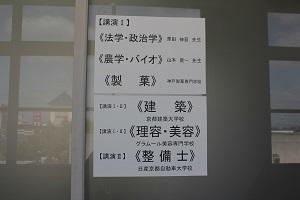 【講演Ⅰ】
《法学・政治学》 原田 伸吾 先生
《農学・バイオ》 山本 恵一 先生
《製菓》 神戸製菓専門学校
【講演Ⅰ・Ⅱ】 《建築》
京都建築大学校
【講演Ⅰ・Ⅱ】 《理容・美容》
グラムール美容専門学校
【講演Ⅱ】 《整備士》
日産京都自動車大学校